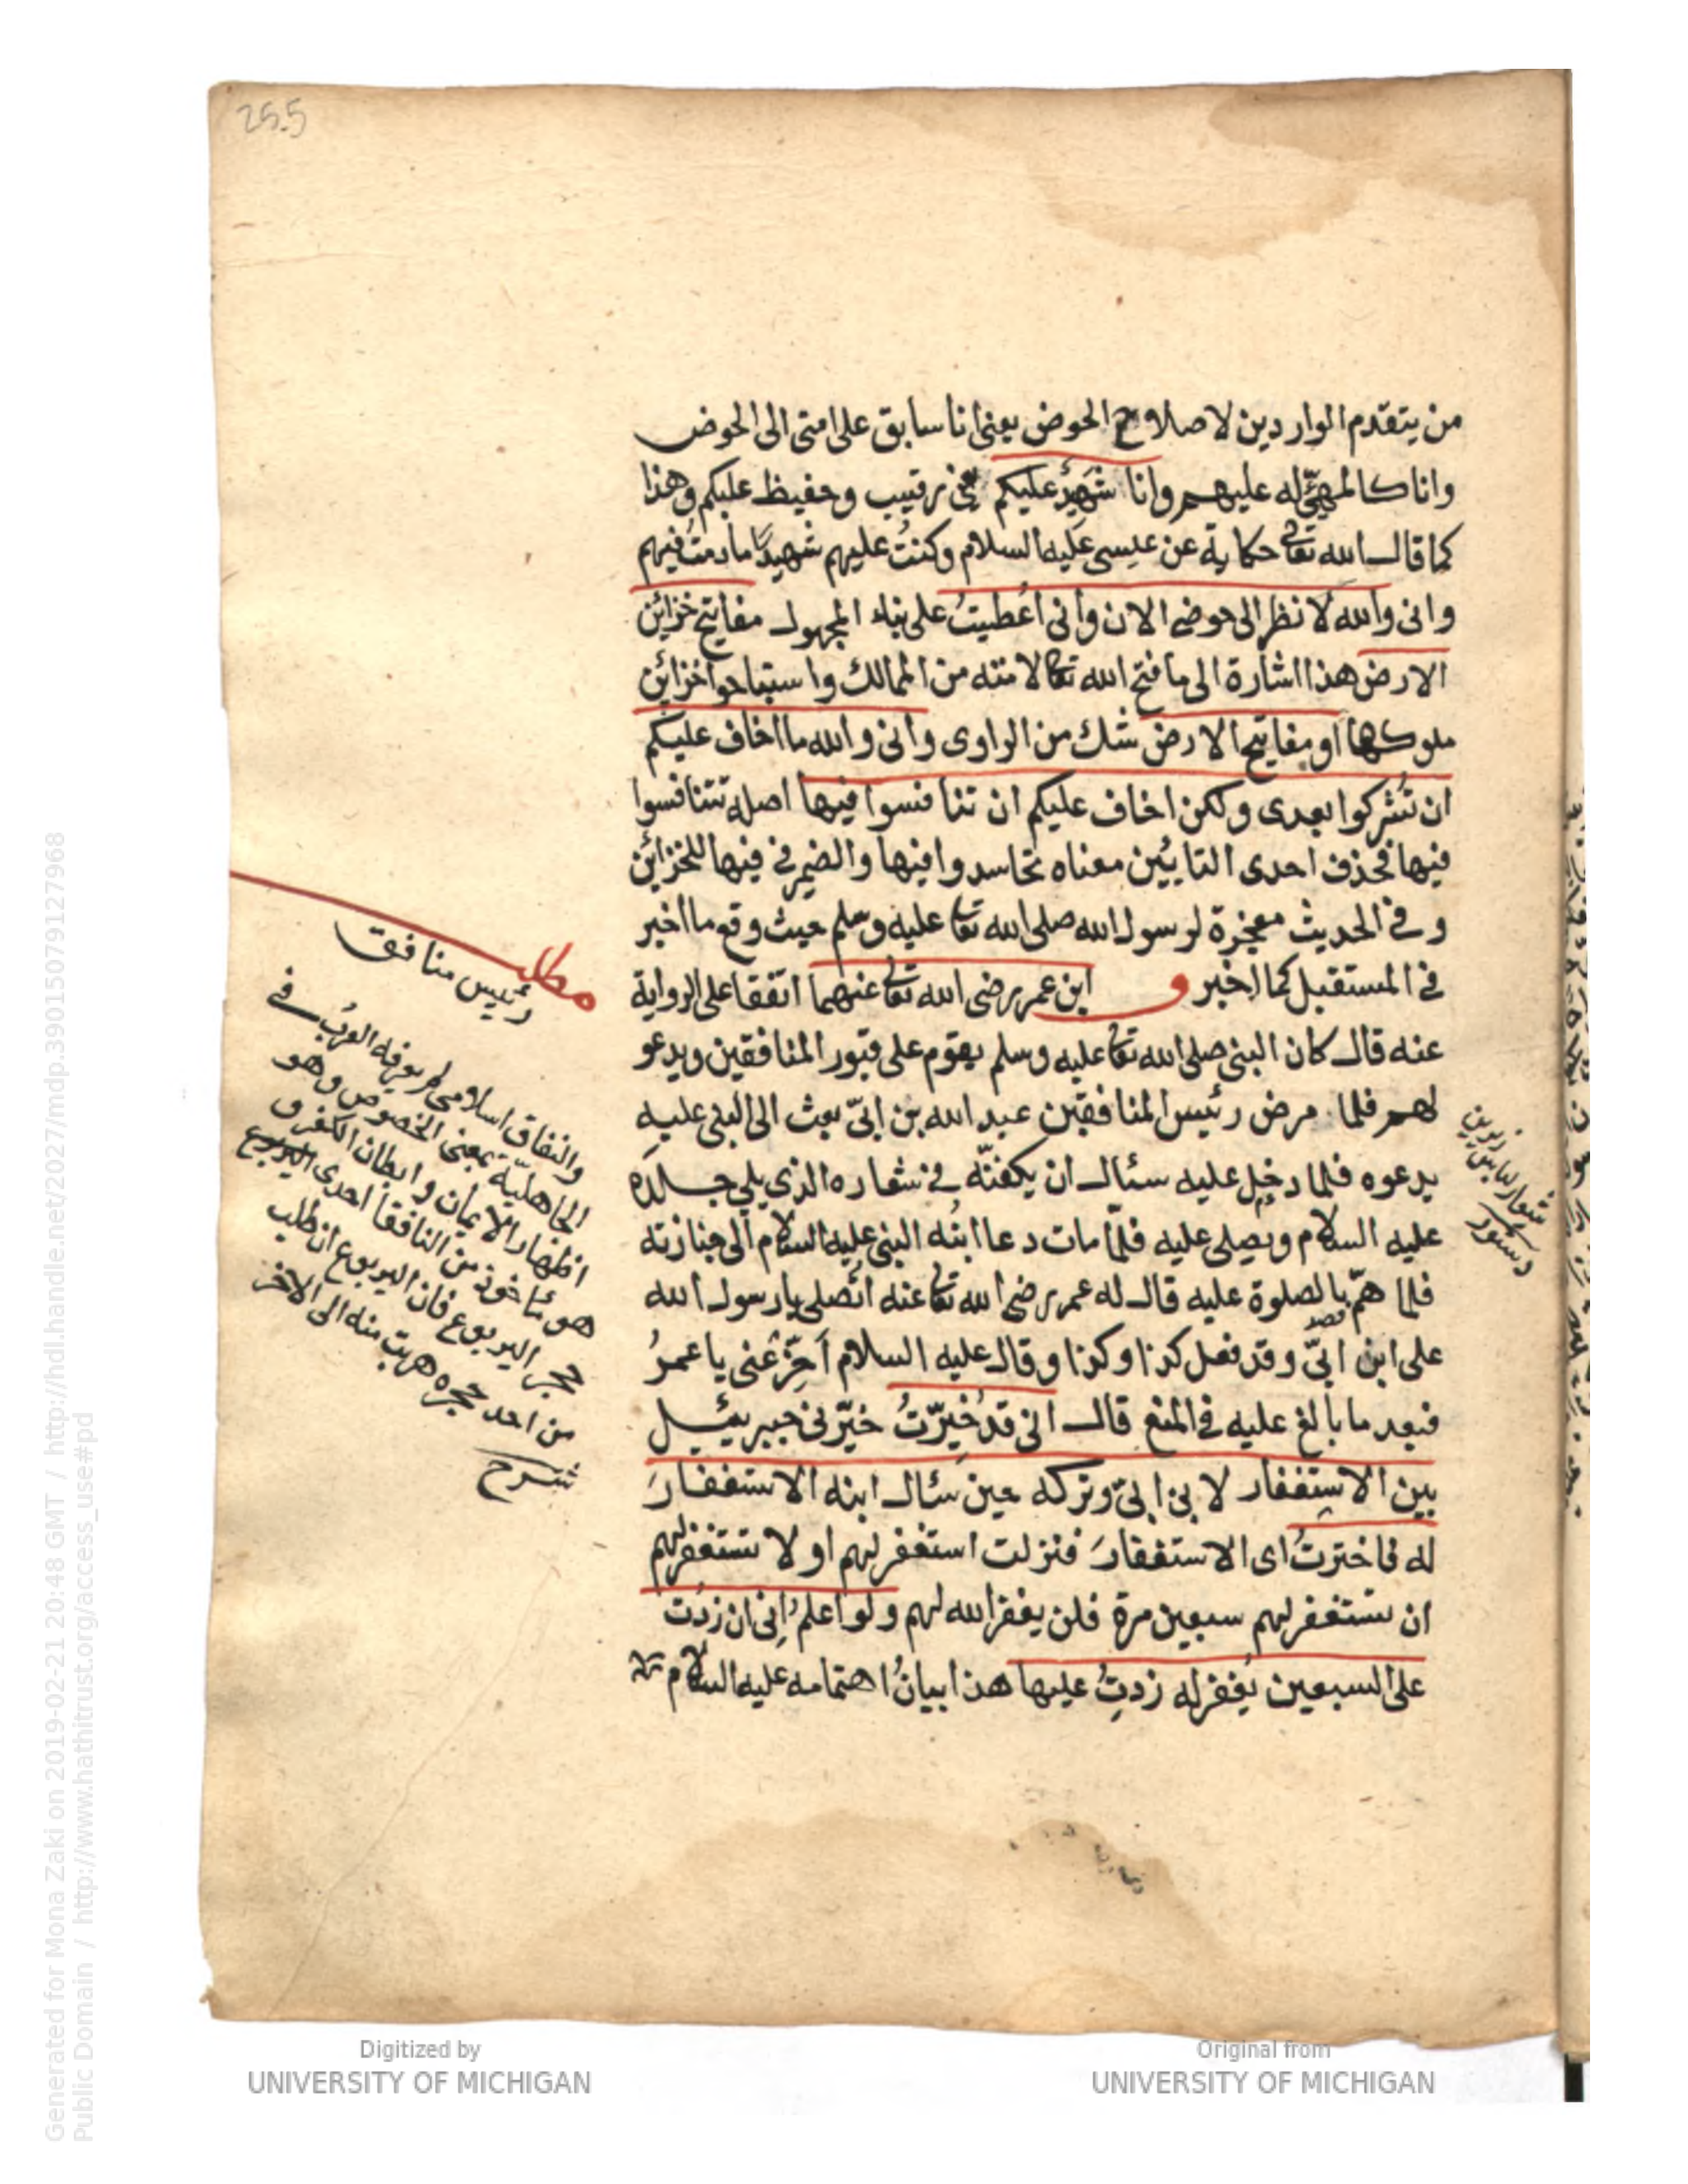 255
من يتقدم الواردين لاصلاح الحوض يعنى انا سابق على امتى الى الحوض
وانا كالمهيّئ له عليهم وانا شهيدٌ عليكم يعنى رقيب وحفيظ عليكم وهذا
كما قال الله تعالى حكاية عن عيسى عليه السلام وكنتُ عليهم شهيدًا مادمتُ فيهم
وانى والله لانظر الى حوضى الان وانى اُعطيتُ على بناء المجهول مفاتيح خزائن
الارض هذا اشارة الى ما فتح الله تعالى لامته من الممالك واستباحوا خزاين
ملوكها او مفاتيح الارض شك من الراوى وانى والله ما اخاف عليكم
ان تُشركوا بعدى ولكن اخاف عليكم ان تنافسوا فيها اصله تتنافسوا
فيها فحذف احدى التايئين معناه تحاسدوا فيها والضمير فى فيها للخزائن
وفى الحديث معجزة لرسول الله صلى الله تعالى عليه وسلم حيث وقع ما اخبر
فى المستقبل كما اخبر و ابن عمر رضى الله تعالى عنهما اتفقا على الرواية
عنه قال كان النبى صلى الله تعالى عليه وسلم يقوم على قبور المنافقين ويدعو
لهم فلما مرض رئيس المنافقين عبد الله بن ابىّ بعث الى النبى عليه
يدعوه فلما دخل عليه سئال ان يكفنّه فى شعاره الذى يلى جلده
عليه السلام ويصلى عليه فلمّا مات دعا ابنُه النبى عليه السلام الى جنازته
فلما همّ بالصلوة عليه قال له عمر رضى الله تعالى عنه اتُصلى يا رسول الله
قصد
على ابن ابىّ وقد فعل كذا وكذا وقال عليه السلام اَخِّرْ عَنى يا عمرُ
فبعد ما بالغ عليه فى المنع قال انى قد خُيِّرْتُ خيّرنى جبريئيل
بين الاستغفار لابن ابىّ وتركه حين سئال ابنه الاستغفارَ
له فاخترتُ اى الاستغفارَ فنزلت استغفر لهم او لا تستغفر لهم
ان تستغفر لهم سبعين مرة فلن يغفر الله لهم ولو اعلمُ انى ان زدت
على السبعين يُغفر له زدتُ عليها هذا بيانُ اهتمامه عليه السلام
مطلب
رئيس منافق
والنفاق اسلامى لم يعرفه العربُ فى
الجاهلية بمعنى الخصوص وهو
اظهار الايمان وابطان الكفر و
هو مأخوذ من النافقا احدى اليربوع
حجر اليربوع فان اليربوع ان طلب
من احد حجره هرب منه الى الاخر
شرح
دستور
Digitized by
UNIVERSITY OF MICHIGAN
Original from
UNIVERSITY OF MICHIGAN
Generated for Mona Zaki on 2019-02-21 20:48 GMT / http://hdl.handle.net/2027/mdp.39015079127968
Public Domain / http://www.hathitrust.org/access_use#pd